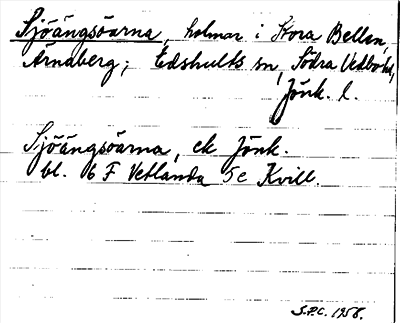 Sjöängsöarna, holmar i Stora Bellen,
Årnaberg; Edshults sn, Södra Vedbo hd,
Jönk. l.
Sjöängsöarna, ek Jönk.
bl. 6 F Vetlanda 5e Kvill.
S.P.C. 1956.